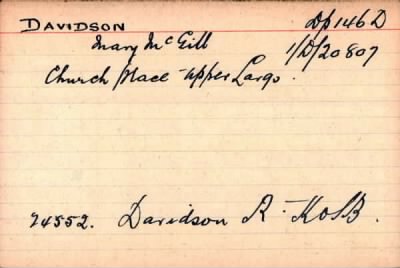 DAVIDSON Dp 146 D
Mary McGill 1/D/20807
Church Place Upper Largo.
24552. Davidson R. KOSB.